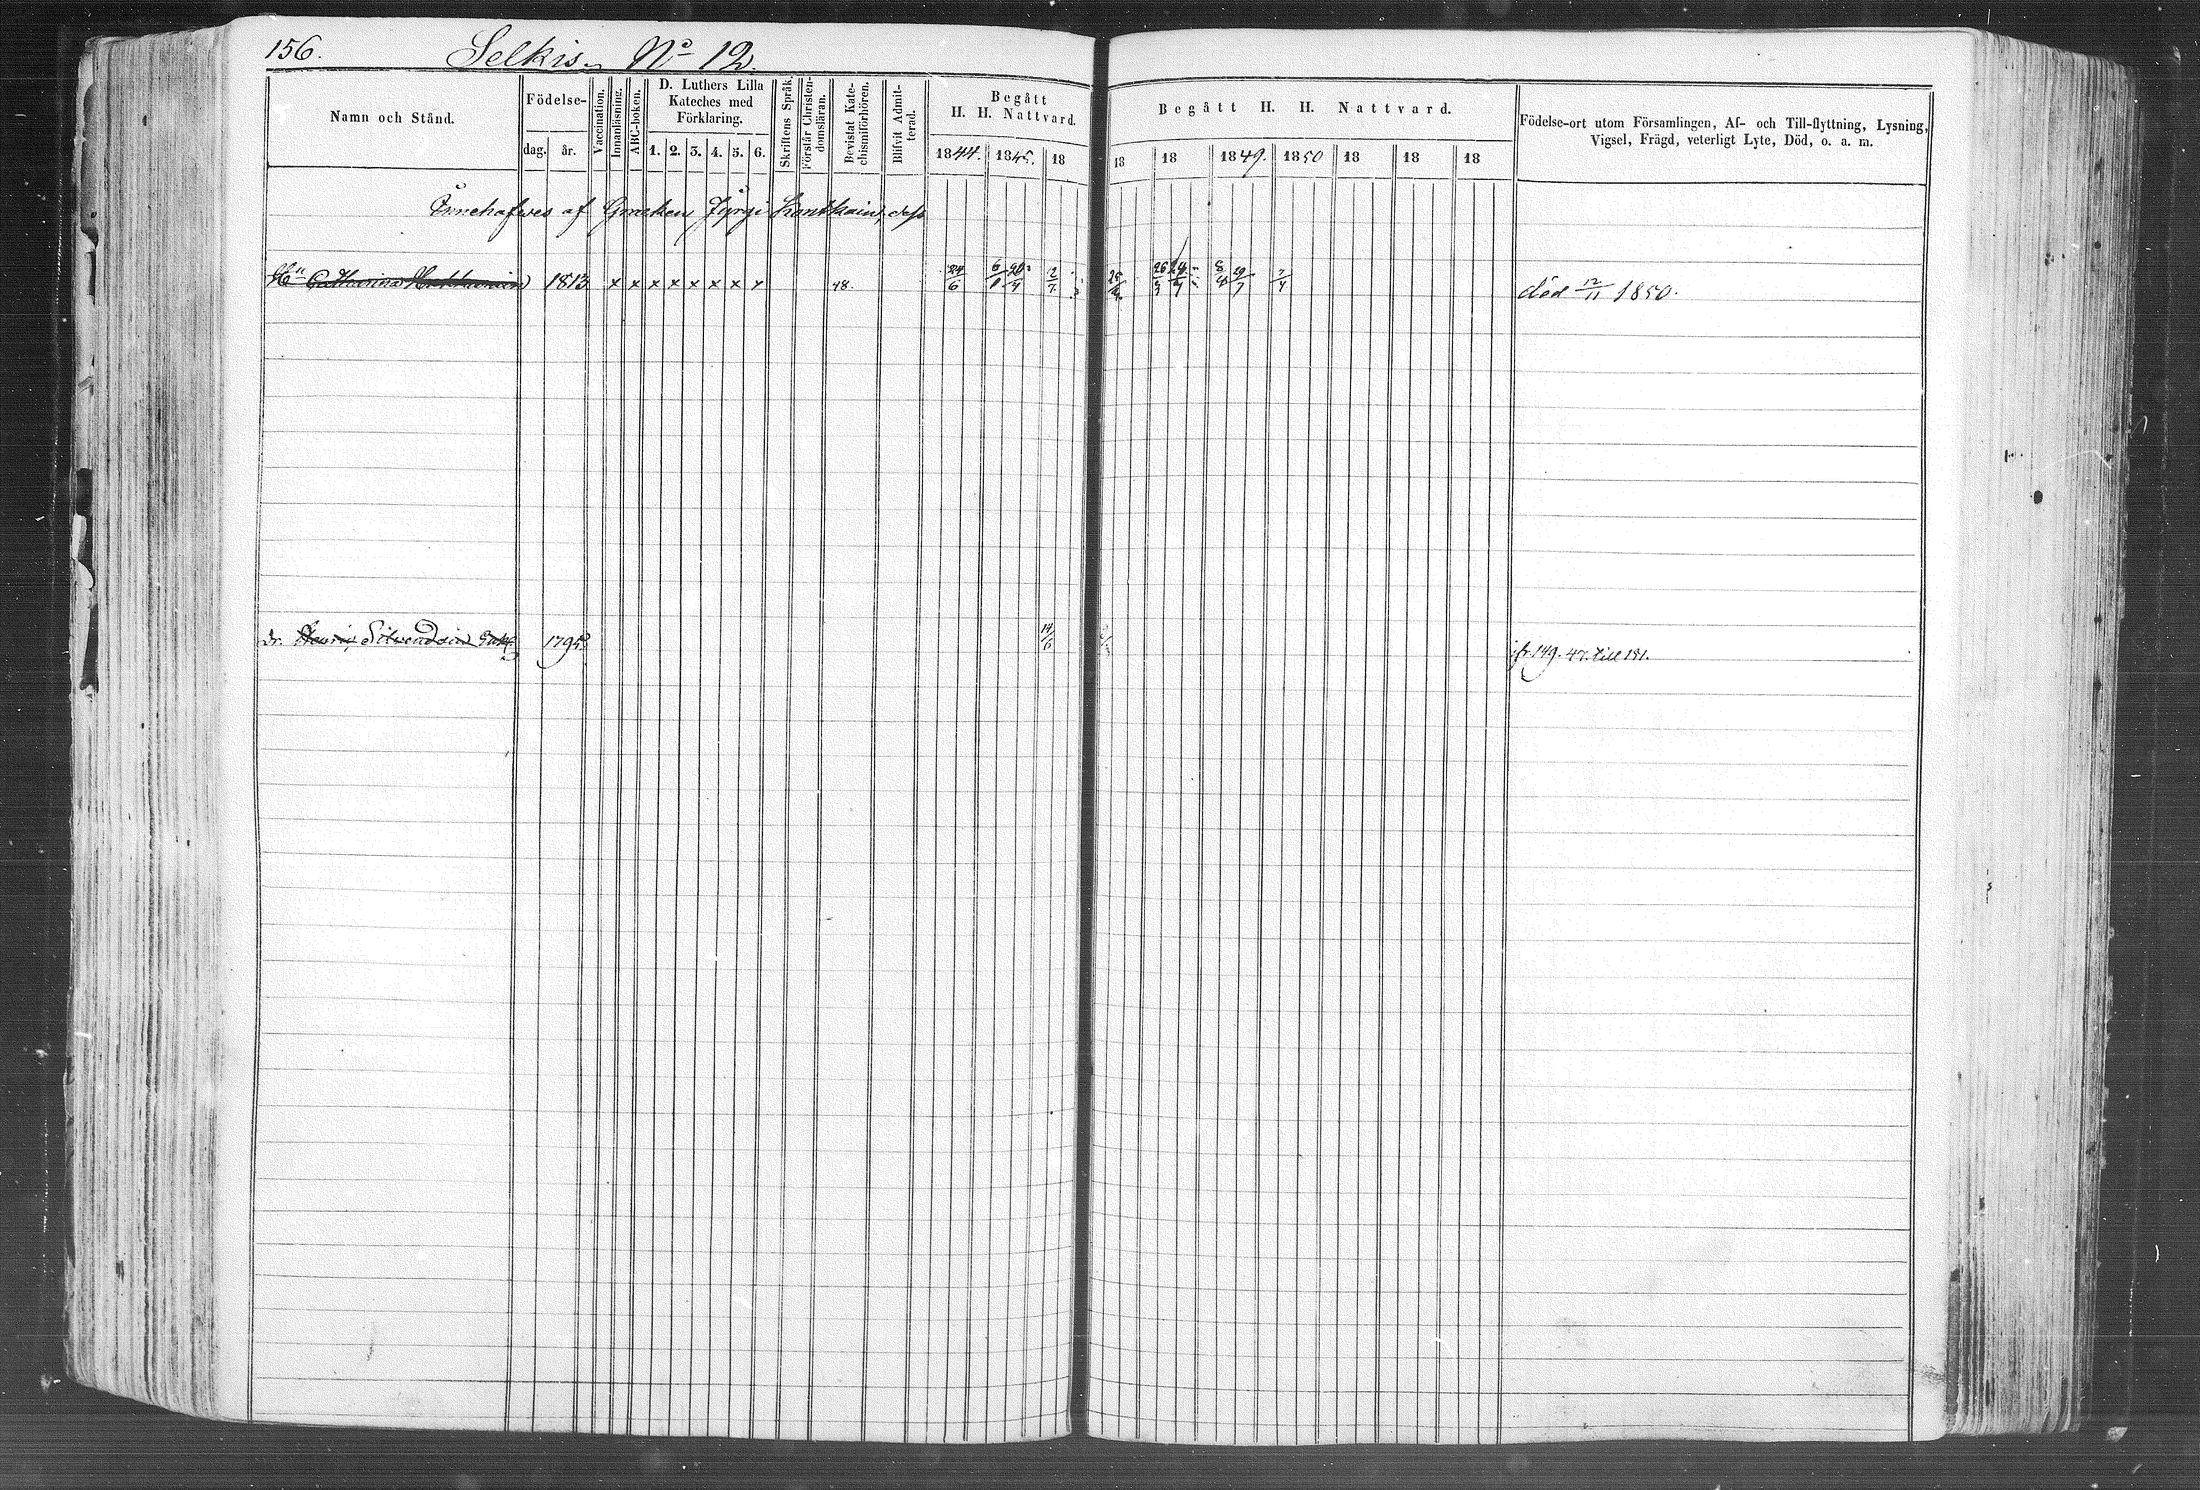 156. Selkis. No 12.
Namn och Stånd.
Födelse-
dag. år.
Vaccination.
Innanläsning.
ABC-boken.
D. Luthers Lilla
Kateches med
Förklaring.
1. 2. 3. 4. 5. 6.
Skriftens Språk.
Förstår Christen-
domsläran.
Bevistat Kate-
chismiförhören.
Blifvit Admit-
terad.
Begått
H. H. Nattvard.
1844. 1845. 18
Begått H. H. Nattvard.
18 18 1849. 1850 18 18 18
Födelse-ort utom Församlingen, Af- och Till-flyttning, Lysning,
Vigsel, Frägd, veterligt Lyte, Död, o. a. m.
Innehafves af Greken Jyrgi dess
Hu Catharina 1813 x x x x x x x x x 48. 24/6 död 12/11 1850.
dr. Silvendoin 1795 14/6 ifr. 149. 47. till 181.